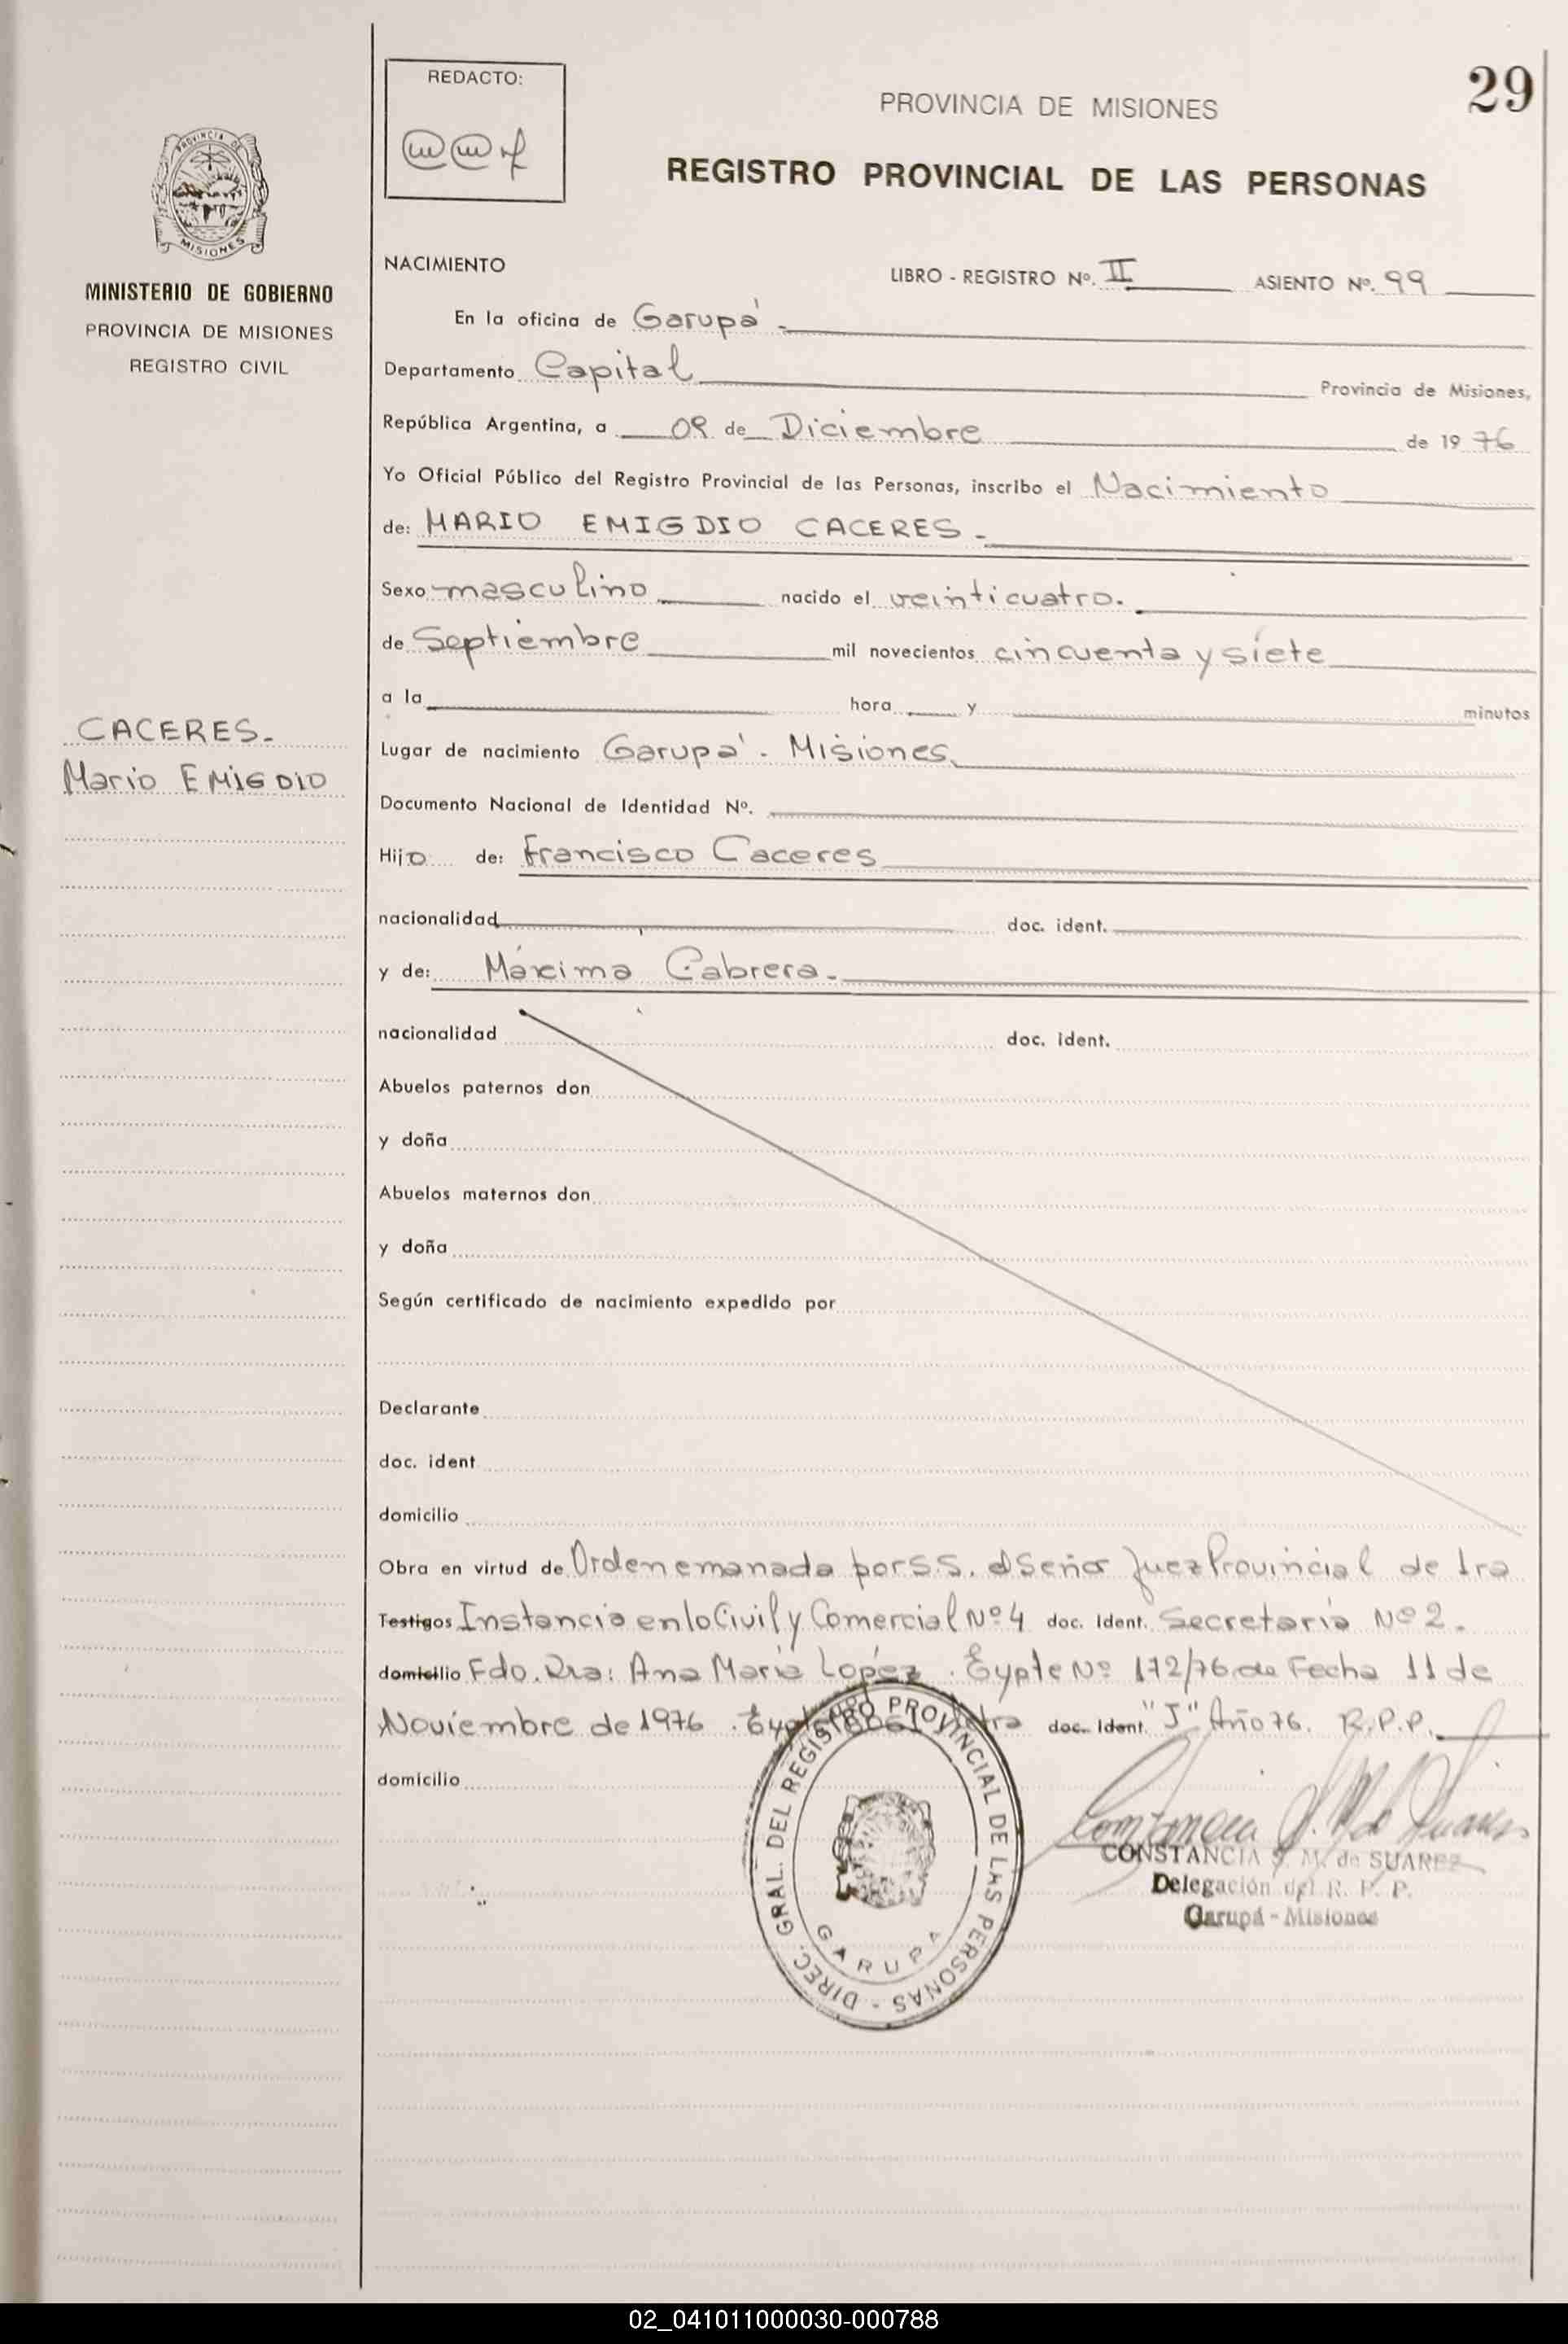 29
REDACTO:
PROVINCIA DE MISIONES
REGISTRO PROVINCIAL DE LAS PERSONAS
PROVINCIA DE
MISIONES
MINISTERIO DE GOBIERNO
PROVINCIA DE MISIONES
REGISTRO CIVIL
CACERES.
Mario EMIGDIO
NACIMIENTO LIBRO - REGISTRO Nº. II ASIENTO Nº. 99
En la oficina de Garupá -
Departamento Capital Provincia de Misiones,
República Argentina, a 09 de Diciembre de 1976
Yo Oficial Público del Registro Provincial de las Personas, inscribo el Nacimiento
de: MARIO EMIGDIO CACERES -
Sexo masculino nacido el veinticuatro.
de Septiembre mil novecientos cincuenta y siete
a la hora y minutos
Lugar de nacimiento Garupá - Misiones
Documento Nacional de Identidad Nº.
Hijo de: Francisco Caceres
nacionalidad doc. ident.
y de: Máxima Cabrera -
nacionalidad doc. ident.
Abuelos paternos don
y doña
Abuelos maternos don
y doña
Según certificado de nacimiento expedido por
Declarante
doc. ident
domicilio
Obra en virtud de Orden emanada por S.S. el Señor Juez Provincial de 1ra
Testigos Instancia en lo Civil y Comercial Nº 4 doc. ident. Secretaría Nº 2.
domicilio Fdo. Dra: Ana María López. Eypte Nº 172/76 de Fecha 11 de
Noviembre de 1976. doc. ident. "J" Año 76. R.P.P.
domicilio
DIREC. GRAL. DEL REGISTRO PROVINCIAL DE LAS PERSONAS -
GARUPA
CONSTANCIA S. M. de SUAREZ
Delegación del R. P. P.
Garupá - Misiones
02_041011000030-000788